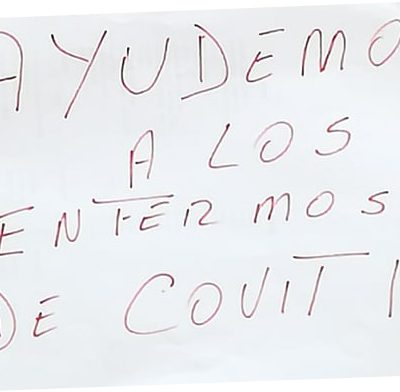 AYUDEMO
A LOS
ENFERMOS
DE COVIT 1